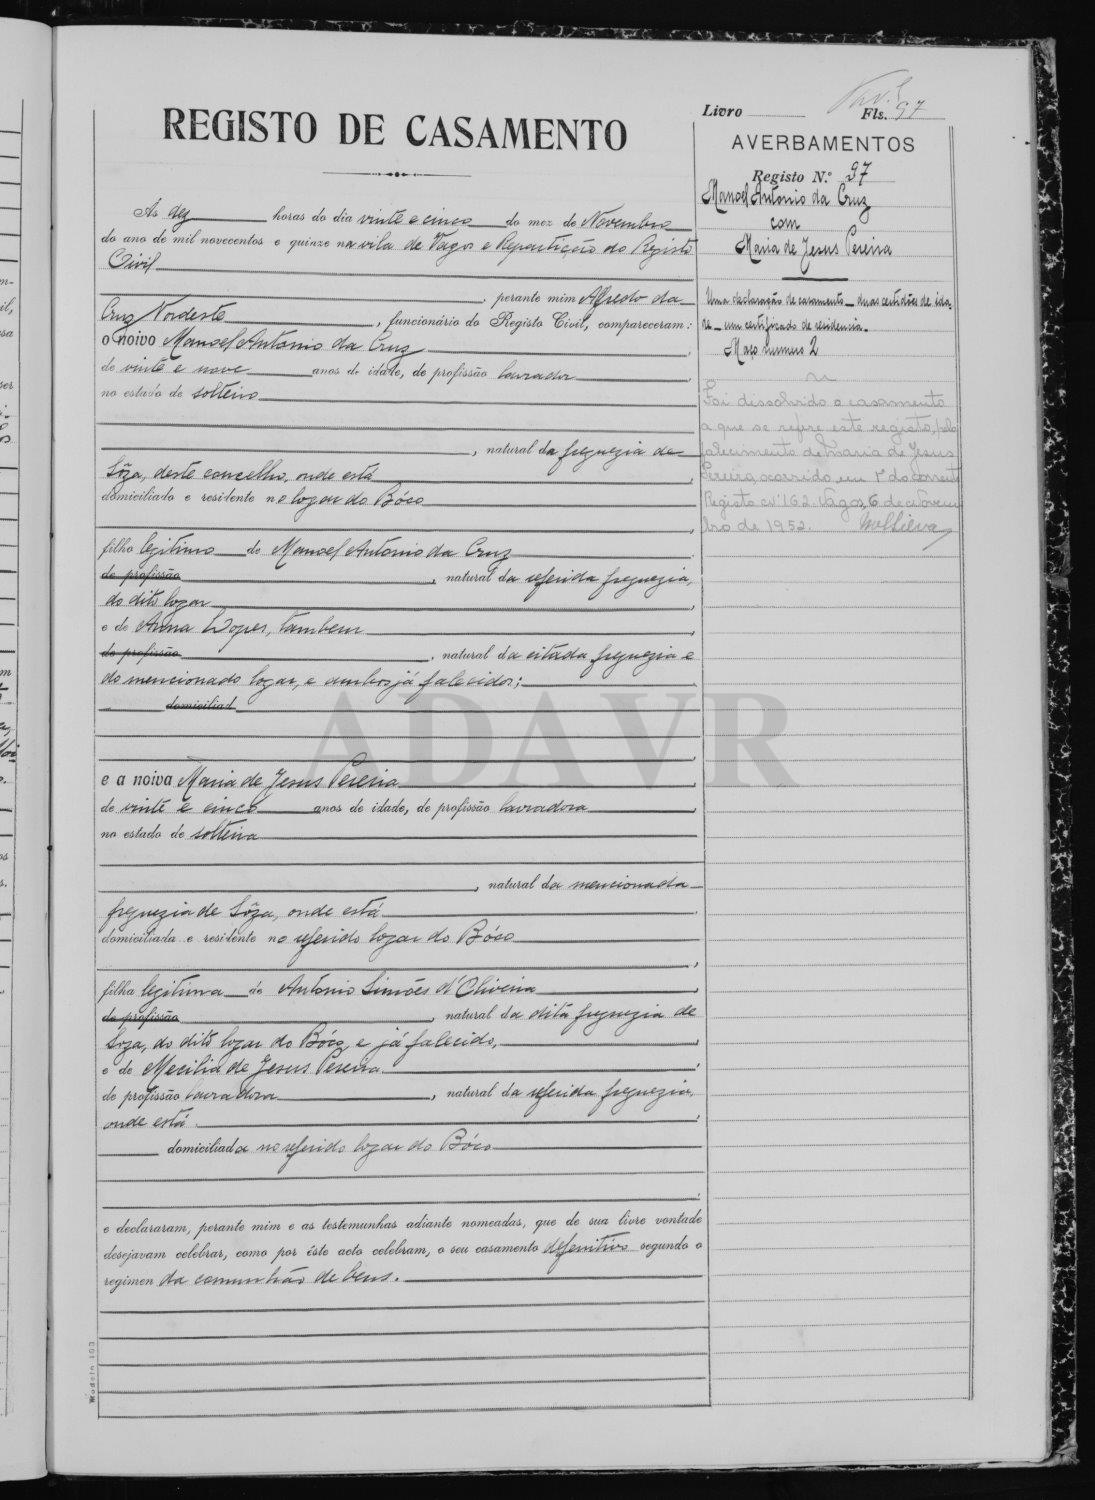 Livro Fls. 97
REGISTO DE CASAMENTO
As dez horas do dia vinte e cinco do mez de Novembro
do ano de mil novecentos e quinze na vila de Vagos e Repartição do Registo
Civil
, perante mim Alfredo da
Cruz Nordeste, funcionário do Registo Civil, compareceram:
o noivo Manoel Antonio da Cruz
de vinte e nove anos de idade, de profissão lavrador,
no estado de solteiro
, natural da freguezia de
Sôza, deste concelho, onde está
domiciliado e residente no logar do Bóco
filho legitimo de Manoel Antonio da Cruz
de profissão, natural da referida freguezia,
do dito logar
e de Anna Lopes, tambem
de profissão, natural da citada freguezia e
do mencionado logar, e ambos já falecidos;
domiciliad
e a noiva Maria de Jesus Pereira
de vinte e cinco anos de idade, de profissão lavradora,
no estado de solteira
, natural da mencionada
freguezia de Sôza, onde está
domiciliada e residente no referido logar do Bóco
filha legitima de Antonio Simões d'Oliveira
de profissão, natural da dita freguezia de
Soza, do dito logar do Bóco, e já falecido,
e de Mecilia de Jesus Pereira
de profissão lavradora, natural da referida freguezia,
onde está
domiciliada no referido logar do Bóco
e declararam, perante mim e as testemunhas adiante nomeadas, que de sua livre vontade
desejavam celebrar, como por êste acto celebram, o seu casamento defenitivo segundo o
regimen da comunhão de bens.
Modelo 103
AVERBAMENTOS
Registo N.º 97
Manoel Antonio da Cruz
com
Maria de Jesus Pereira
Uma declaração de casamento _ duas certidões de ida-
de _ um certificado de residencia.
Maço numero 2
Foi dissolvido o casamento
a que se refere este registo, pelo
falecimento de Maria de Jesus
Pereira, ocorrido em 1 do corrente
Registo nº 162. Vagos, 6 de Novem
bro de 1952.
ADAVR